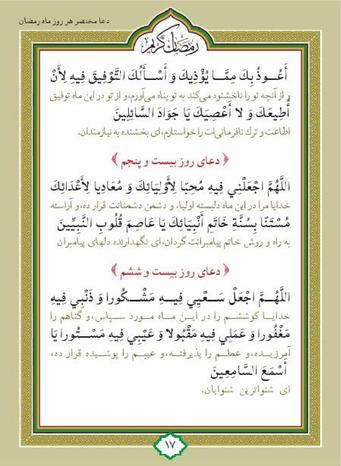 دعا مختصر هر روز ماه رمضان
رمضان کریم
أَعُوذُ بِكَ مِمَّا يُؤْذِيكَ وَ أَسْأَلُكَ التَّوْفِيقَ فِيهِ لِأَنْ
و از آنچه تو را ناخشنود می‌کند به تو پناه می‌آورم، و از تو در این ماه توفیق
أُطِيعَكَ وَ لا أَعْصِيَكَ يَا جَوَادَ السَّائِلِينَ
اطاعت و ترك نافرمانی‌ات را خواستارم، ای بخشنده به نیازمندان.
﴿دعای روز بیست و پنجم﴾
اللَّهُمَّ اجْعَلْنِي فِيهِ مُحِبّا لِأَوْلِيَائِكَ وَ مُعَادِيا لِأَعْدَائِكَ
خدایا مرا در این ماه دلبسته اولیا، و دشمن دشمنانت قرار ده، و آراسته
مُسْتَنّا بِسُنَّةِ خَاتَمِ أَنْبِيَائِكَ يَا عَاصِمَ قُلُوبِ النَّبِيِّينَ
به راه و روش خاتم پیامبرانت گردان، ای نگهدارنده دلهای پیامبران
﴿دعای روز بیست و ششم﴾
اللَّهُمَّ اجْعَلْ سَعْيِي فِيهِ مَشْكُورا وَ ذَنْبِي فِيهِ
خدایا کوششم را در این ماه مورد سپاس، و گناهم را
مَغْفُورا وَ عَمَلِي فِيهِ مَقْبُولا وَ عَيْبِي فِيهِ مَسْتُورا يَا
آمرزیده، و عملم را پذیرفته، و عیبم را پوشیده قرار ده،
أَسْمَعَ السَّامِعِينَ
ای شنواترین شنوایان.
۱۷